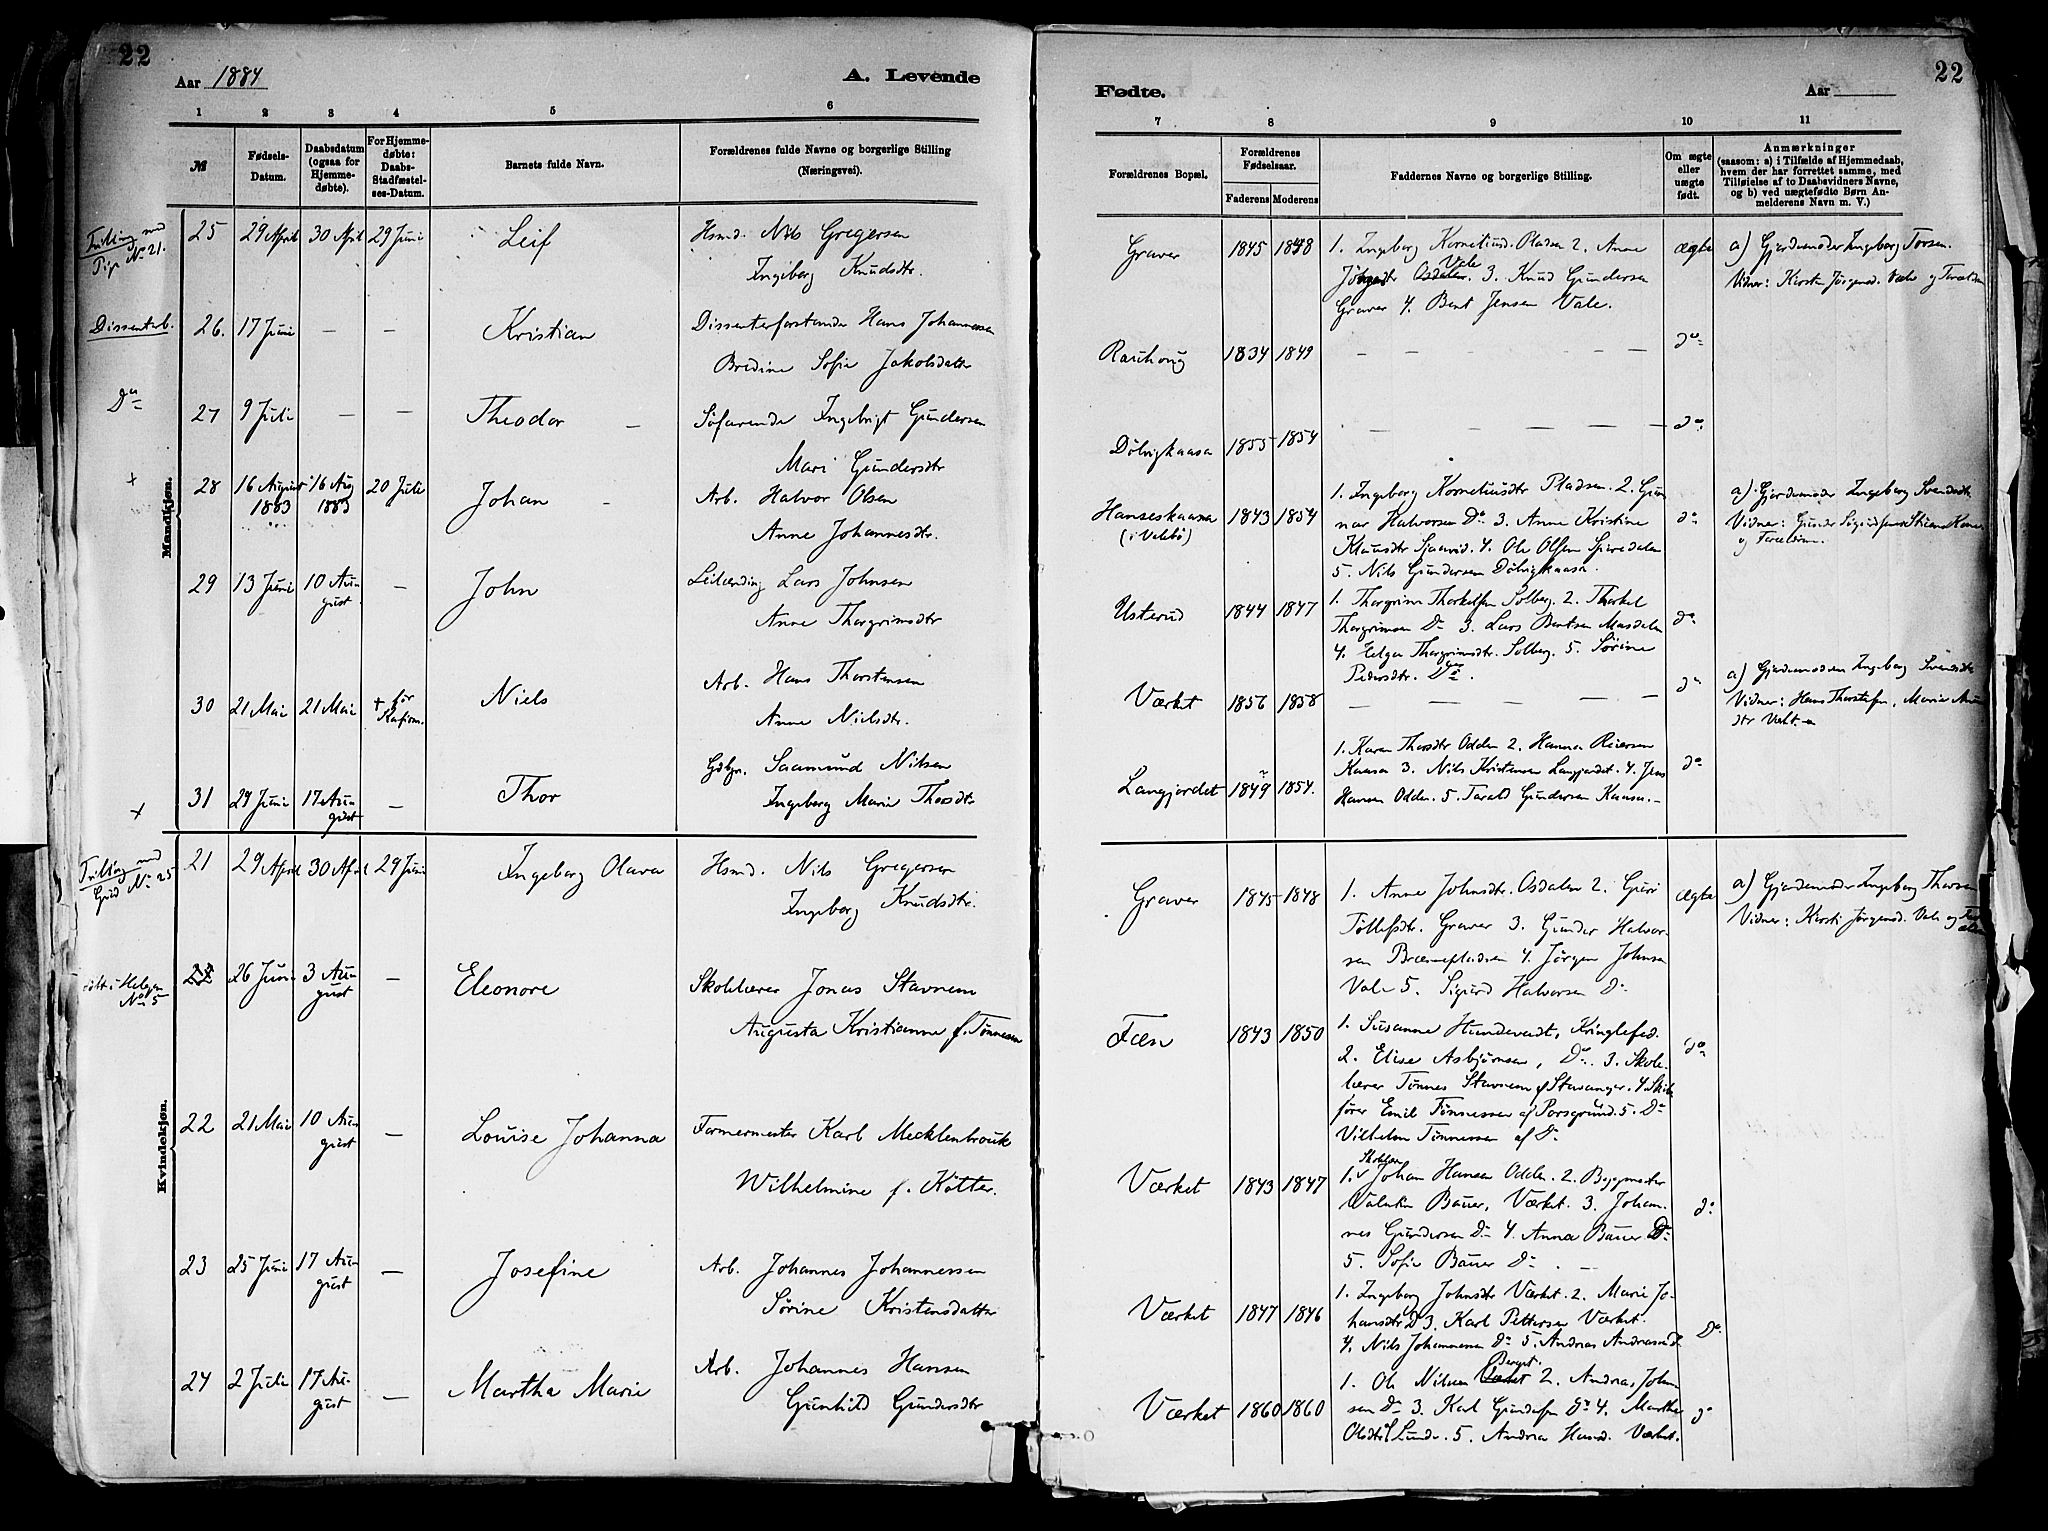 22
Aar 1884
A. Levende
1 2 3 4 5 6
№
Fødsels-Datum.
Daabsdatum (ogsaa for Hjemmedøbte).
For Hjemmedøbte: Daabs-Stadfæstelses-Datum.
Barnets fulde Navn.
Forældrenes fulde Navne og borgerlige Stilling (Næringsvei).
Mandkjøn.
Tvilling med Pige No 21.
25 29 April 30 April 29 Juni Leif Hsmd. Nils Gregersen
Ingeborg Knudsdtr.
Dissenterb.
26. 17 Juni — — Kristian Dissenterforstander Hans Johannessen
Bredine Sofie Jakobsdatter
Do
27 9 Juli — — Theodor Søfarende Ingebrigt Gundersen
Mari Gundersdtr
+
28 16 August 1883 16 Aug 1883 20 Juli Johan Arb. Halvor Olsen
Anne Johannesdtr.
29 13 Juni 10 August — John Leilænding Lars Johnsen
Anne Thorgrimsdtr
30 21 Mai 21 Mai + før Kofirm. Niels Arb. Hans Thorstensen
Anne Nielsdtr.
+
31 24 Juni 17 August — Thor Gdbr. Saamund Nilsen
Ingeborg Marie Thorsdtr
Kvindekjøn.
Tvilling med Gut No 25
21 29 April 30 April 29 Juni Ingeborg Olava Hsmd. Nils Gregersen
Ingeborg Knudsdtr.
i Helgen No 5
26 Juni 3 August — Eleonore Skolelærer Jonas Stavnem
Augusta Kristianne f. Tønnesen
22 21 Mai 10 August — Louise Johanna Formermester Karl Mecklenbrouk
Wilhelmine f. Kötter.
23 25 Juni 17 August — Josefine Arb. Johannes Johannessen
Sørine Kristensdatter
24 2 Juli 17 August — Martha Marie Arb. Johannes Hansen
Gunhild Gundersdtr
Fødte.
Aar
22
7 8 9 10 11
Forældrenes Bopæl.
Forældrenes Fødselsaar.
Faderens Moderens
Faddernes Navne og borgerlige Stilling.
Om ægte eller uægte født.
Anmærkninger
(saasom: a) i Tilfælde af Hjemmedaab,
hvem der har forrettet samme, med
Tilføielse af to Daabsvidners Navne,
og b) ved uægtefødte Børn Anmelderens Navn m. V.)
Graver 1845 1848 1. Ingeborg Korneliusd. Pladsen 2. Anne
Osdalen Vale 3. Knud Gundersen
Graver 4. Bent Jensen Vale.
ægte a) Gjordemoder Ingeborg Torsen.
Vidner: Kirsten Jørgensd. Vale og
1834 1849 — — — — — do
Dölvigkaasa 1855 1854 — — — — — do
Hanseskaasa (i Valebø) 1843 1854 1. Ingeborg Korneliusdtr Pladsen. 2. Gun
nar Halvorsen Do 3. Anne Kristine
Klausdtr 4. Ole Olsen
5. Nils Gundersen Dölvigkaasa.
do a) Gjordemoder Ingeborg Svendsdtr
Vidner: Gunder
Usterud 1844 1847 1. Thorgrim Thorkelsen Solberg. 2. Thorkel
Thorgrimsen Do 3. Lars Bentsen Masdalen
4. Helga Thorgrimsdtr. Solberg. 5. Sørine
Pedersdtr. Do.
do
Værket 1856 1858 — — — do a) Gjordemoderen Ingeborg Svendsdtr
Vidner: Hans Thorstensen, Marie
Langjordet 1849 1854. 1. Karen Thorsdtr Odden 2. Hanna Reiersen
Kaasa 3. Nils Kristensen Langjordet. 4. Jens
Hansen Odden. 5. Tarald Gundersen Kaasa.
do
Graver 1845 1848 1. Anne Johnsdtr. Osdalen 2. Guri
Tollefsdtr. Graver 3. Gunder Halvor-
sen Brænnepladsen 4. Jørgen Johnsen
Vale 5. Sigurd Halvorsen Do
Ægte a) Gjordemoder Ingeborg Thorsen
Vidner: Kirsti Jørgensd. Vale og
Fæn 1843 1850 1. Susanne Hundevadt, Kringlefed.
2. Elise Asbjørnsen, Do. 3. Skole-
lærer Tønnes Stavnem af Stavanger. 4. Skibs
fører Emil Tønnessen af Porsgrund. 5. Do
Vilhelm Tønnessen af Do
do
Værket 1843 1847 1. Skolelærer Johan Hansen Odden. 2. Bygmester
Valentin Bauer, Værket. 3. Johan-
nes Gundersen Do 4. Anna Bauer Do
5. Sofie Bauer Do.
do
Værket 1847 1846 1. Ingeborg Johnsdtr Værket. 2. Marie Jo-
hansdtr Do 3. Karl Pettersen Værket.
4. Nils Johannessen Do 5. Andreas Andreassen Do
Do
Værket 1860 1860 1. Ole Nilsen Berget. 2. Andreas John
sen Do 3. Karl Gundersen Do 4. Marthe
Olsdtr Lunde. 5. Andrea Hansd. Værket.
do